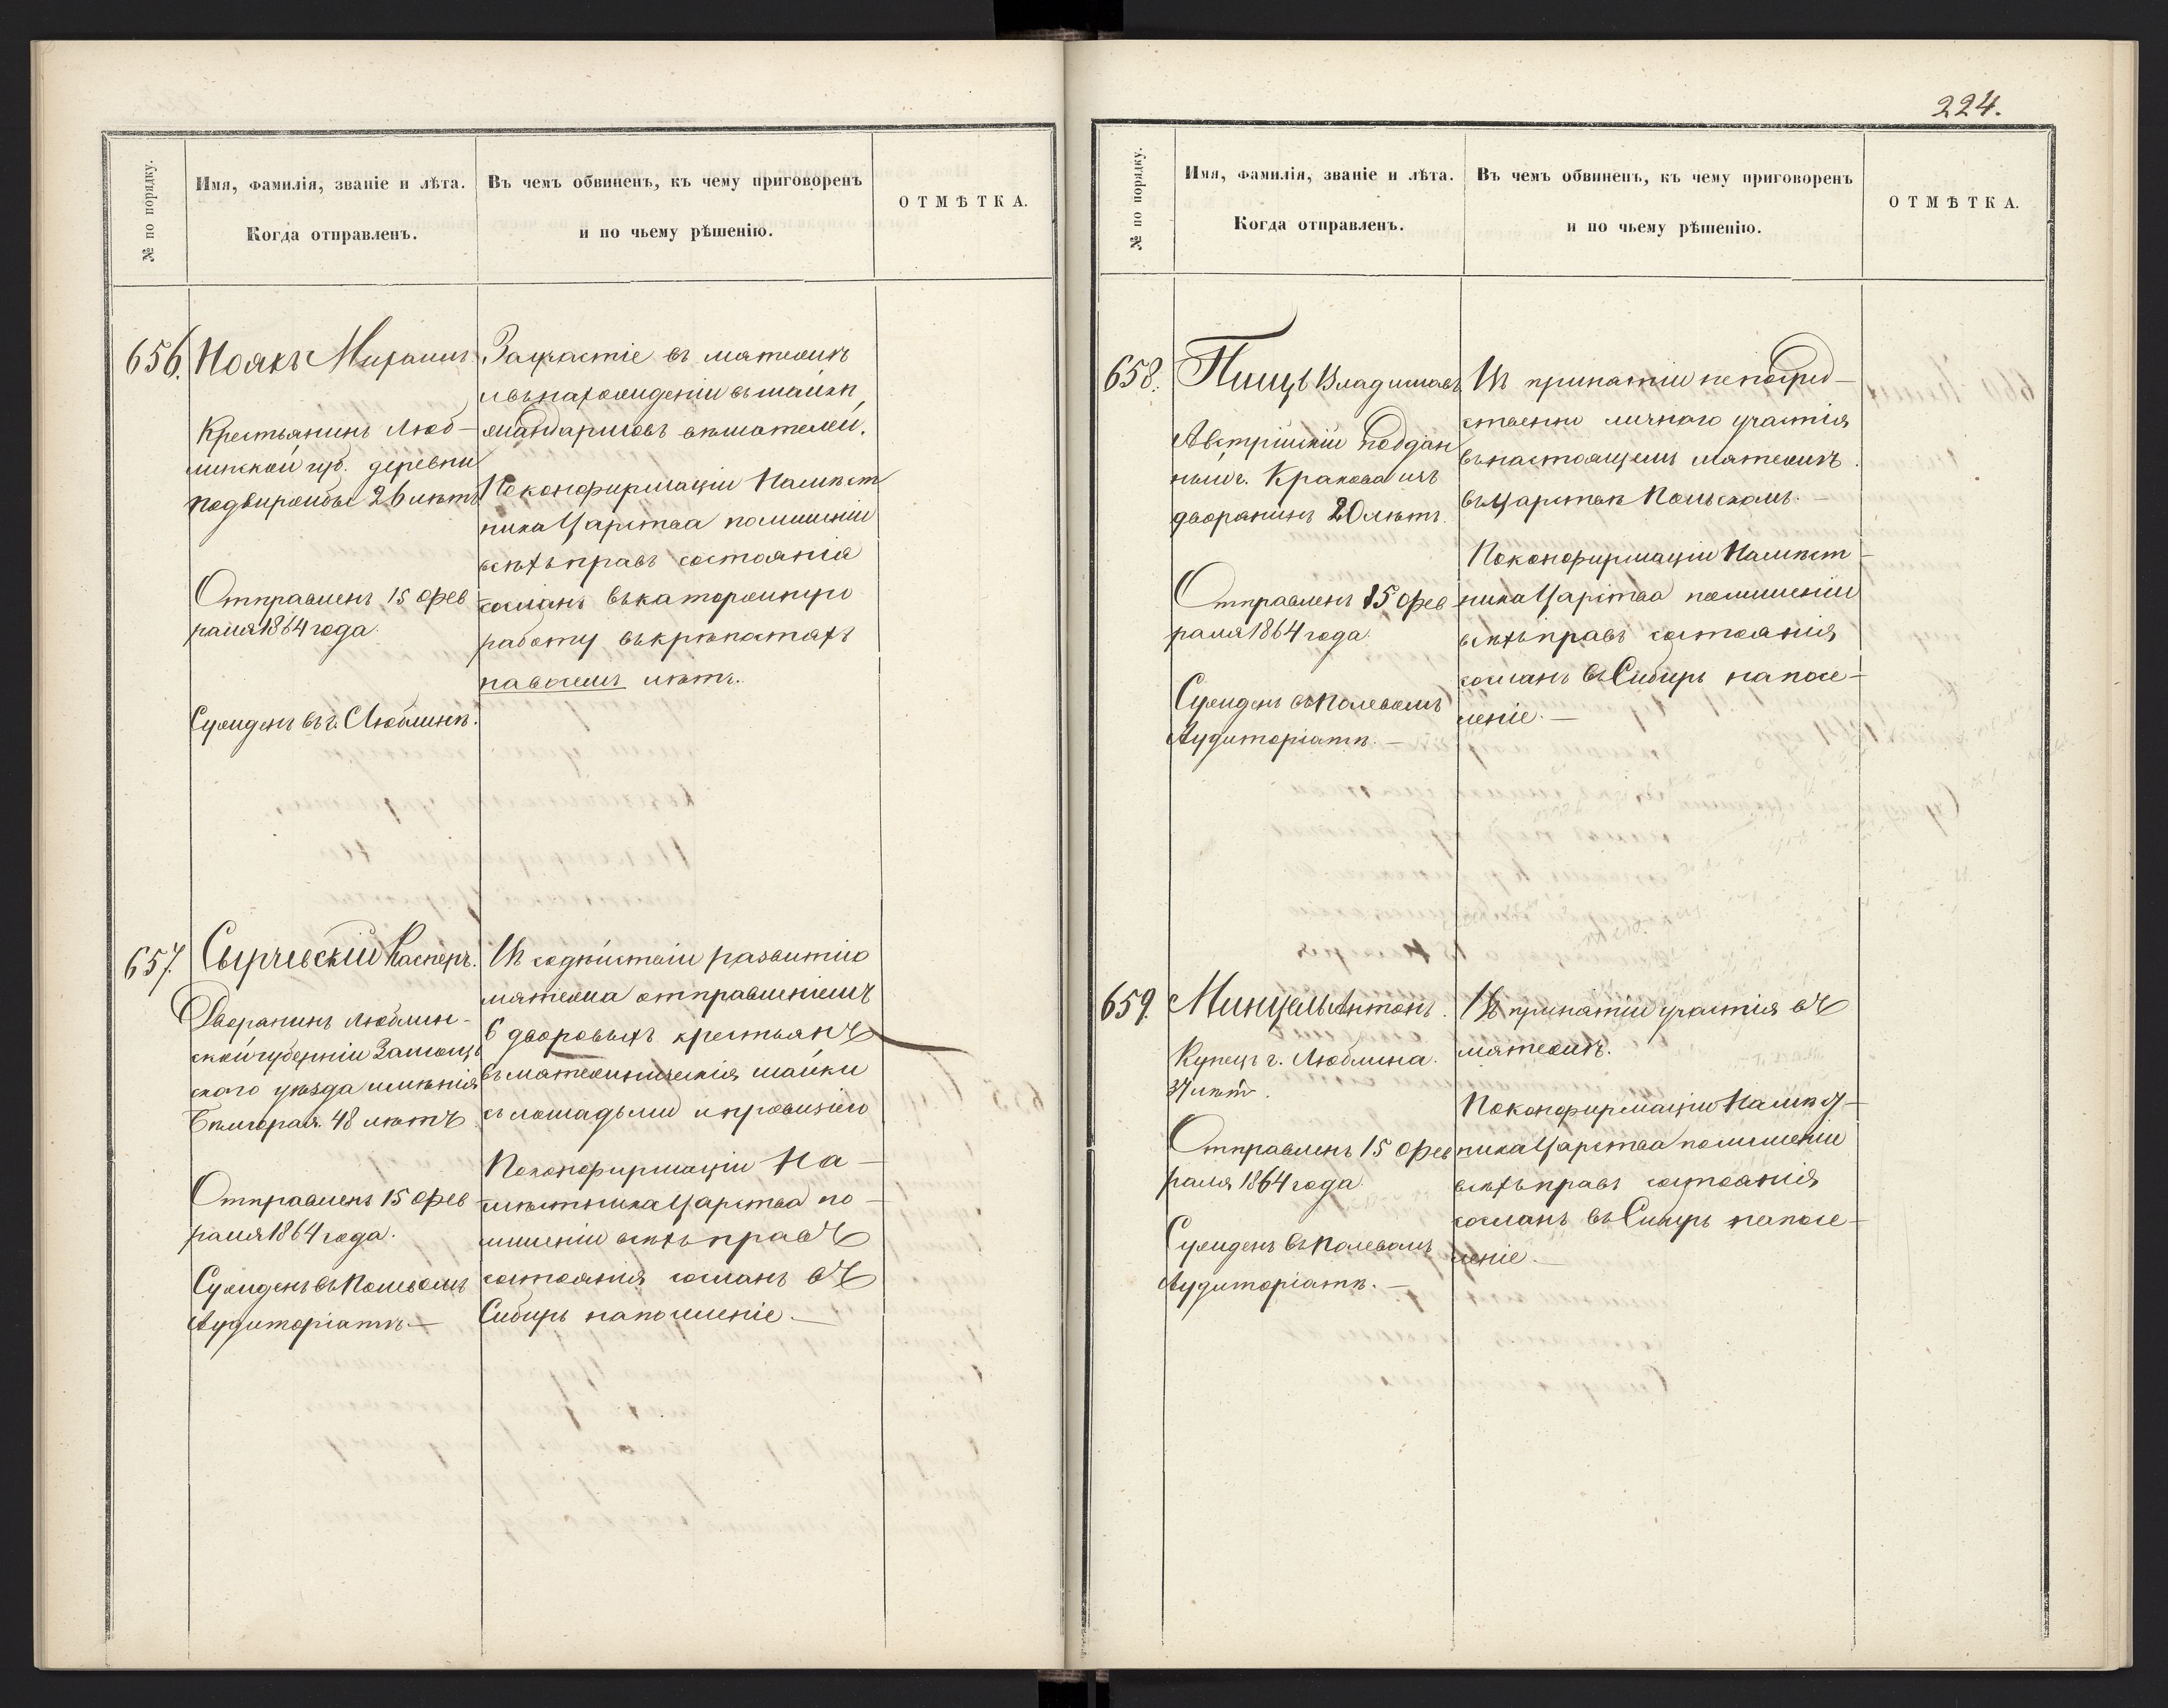 224.
№ по порядку.
Имя, фамилія, званіе и лѣта.
Когда отправленъ.
Въ чемъ обвиненъ, къ чему приговоренъ
и по чьему рѣшенію.
ОТМѢТКА.
656.
Ноякъ
Крестьянинъ Люб-
линской губ. деревни
26 лѣтъ
Отправленъ 15 Фев-
раля 1864 года.
Сужденъ въ г. Люблинѣ.
За участіе въ мятежѣ
и въ нахожденіи въ шайкѣ
жандармовъ вѣшателей.
По конфирмаціи Намѣст
ника Царства по лишеніи
всѣхъ правъ состоянія
сосланъ въ каторжную
работу въ крѣпостяхъ
на восемь лѣтъ.
657.
Касперъ.
Дворянинъ Люблин-
ской губерніи Замощ
скаго уѣзда имѣнія
48 лѣтъ
Отправленъ 15 Фев-
раля 1864 года.
Сужденъ въ Полевомъ
Аудиторіатѣ.—
Въ содѣйствіи развитію
мятежа отправленіемъ
6 дворовыхъ крестьянъ
въ мятежническія шайки
съ лошадьми и провизіею
По конфирмаціи На-
мѣстника Царства по
лишеніи всѣхъ правъ
состоянія сосланъ въ
Сибирь на поселеніе.—
№ по порядку.
Имя, фамилія, званіе и лѣта.
Когда отправленъ.
Въ чемъ обвиненъ, къ чему приговоренъ
и по чьему рѣшенію.
ОТМѢТКА.
658.
Пищъ Владиславъ
Австрійскій поддан
ный г. Кракова изъ
дворянинъ 20 лѣтъ.
Отправленъ 15 Фев-
раля 1864 года.
Сужденъ въ Полевомъ
Аудиторіатѣ.—
Въ принятіи непосред-
ственно личнаго участія
въ настоящемъ мятежѣ
въ Царствѣ Польскомъ.—
По конфирмаціи Намѣст-
ника Царства по лишеніи
всѣхъ правъ состоянія
сосланъ въ Сибирь на посе-
леніе.—
659.
Минцель Антонъ.
Купецъ г. Люблина.
37 лѣтъ.
Отправленъ 15 Фев
раля 1864 года.
Сужденъ въ Полевомъ
Аудиторіатѣ.—
Въ принятіи участія въ
мятежѣ.
По конфирмаціи Намѣст-
ника Царства по лишеніи
всѣхъ правъ состоянія
сосланъ въ Сибирь на посе-
леніе.—